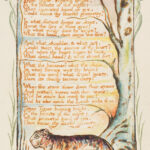 In the forests of the night;
What immortal hand or eye,
Could frame thy fearful symmetry?
In what distant deeps or skies,
Burnt the fire of thine eyes?
On what wings dare he aspire?
What the hand, dare sieze the fire?
And what shoulder, & what art,
Could twist the sinews of thy heart?
And when thy heart began to beat,
What dread hand? & what dread feet?
What the hammer? what the chain,
In what furnace was thy brain?
What the anvil? what dread grasp,
Dare its deadly terrors clasp?
When the stars threw down their spears
And water'd heaven with their tears:
Did he smile his work to see?
Did he who made the Lamb make thee?